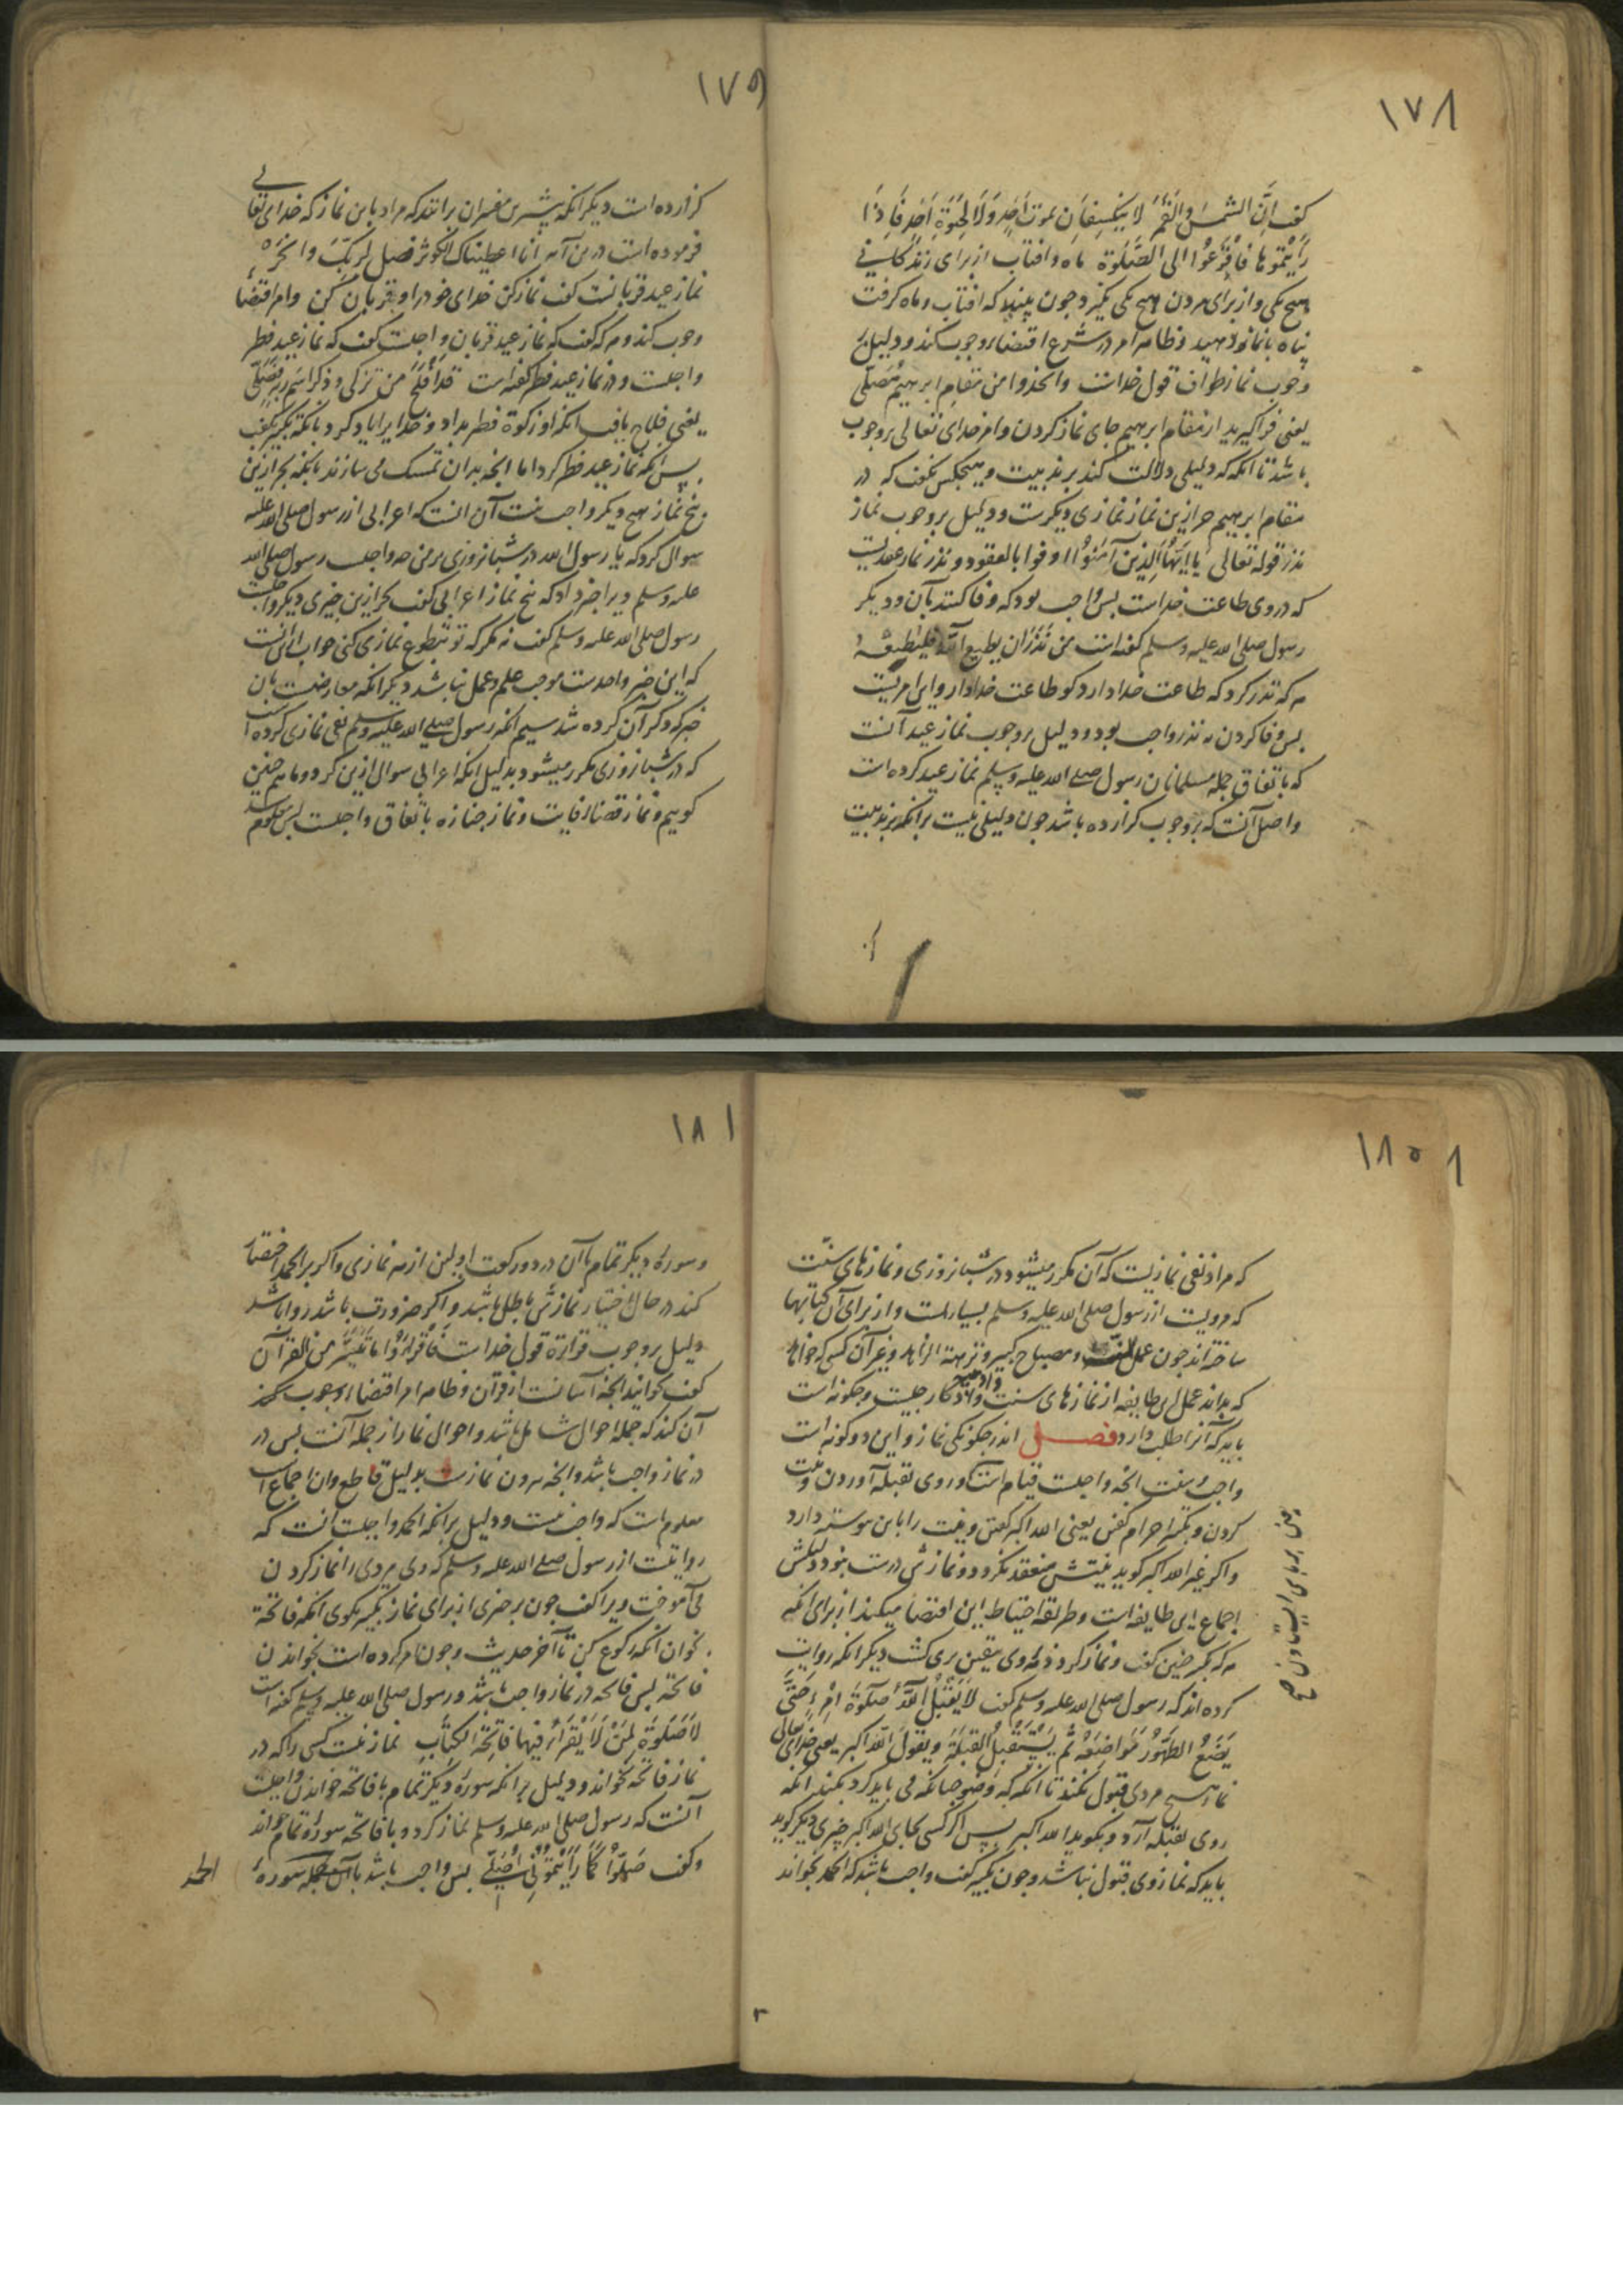 ١٧٨
كفت اِنَّ الشمسَ والقَمَرَ لا يَنكسِفَانِ لموتِ اَحَدٍ وَلَا لِحَيٰوةِ اَحَدٍ فَاِذَا
رَاَيْتموها فَافْزَعُوا الى الصَّلوٰة ماه و افتاب از برای زندکانی
هیچ یکی و از برای مردن هیچ یکی نکیرد چون ببینید که افتاب و ماه کرفت
پناه با نماز دهید و ظاهر امر در شرع اقتضاء وجوب کند و دلیل بر
وجوب نماز طواف قول خداست واتخذوا من مقام ابرهیم مُصَلّی
یعنی فراکیرید از مقام ابرهیم جای نماز کردن و امر خدای تعالی بر وجوب
باشد تا آنکه که دلیلی دلالت کند بر ندبیت و هیچکس نکفت که در
مقام ابرهیم جز ازین نماز نمازی دیکرست و دلیل بر وجوب نماز
نذر قوله تعالی یا اَیُّهَا الَّذِینَ آمَنُوا اوفوا بالعقود و نذر نماز عقدیست
که در وی طاعت خداست پس واجب بود که وفا کنند بآن و دیکر
رسول صلی الله علیه وسلم کفته است من نَذَرَ ان یطیع الله فلیُطِعْهُ
هر که نذر کرد که طاعت خدا دارد کو طاعت خدا دار و این امریست
پس وفا کردن به نذر واجب بود و دلیل بر وجوب نماز عید آنست
که باتفاق جمله مسلمانان رسول صلی الله علیه وسلم نماز عید کرده است
و اصل آنست که بر وجوب کزارده باشد چون دلیلی نیست بر آنکه بر ندبیت
١٧٩
کزارده است دیکر آنکه بیشترین مفسران برانند که مراد باین نماز که خدای تعالی
فرموده است درین آیه انا اعطیناک الکوثر فصل لربّک وانحر
نماز عید قربانست کفت نماز کن خدای خود را و قربان کن و امر اقتضاء
وجوب کند و هر که کفت که نماز عید قربان واجبست کفت که نماز عید فطر
واجبست و در نماز عید فطر کفته است قد اَفلَحَ من تزکّی وذکر اسم ربه فصلّی
یعنی فلاح یافت آنکه او زکوة فطر بداد و خدایرا یاد کرد بآنکه تکبیر کفت
پس آنکه نماز عید فطر کرد اما آنچه بدان تمسک می سازند بآنکه بجز ازین
پنج نماز هیچ دیکر واجب نیست آن انست که اعرابی از رسول صلی الله علیه
سوال کرد که یا رسول الله در شبانروزی بر من چه واجبست رسول صلی الله
علیه وسلم ویرا خبر داد که پنج نماز اعرابی کفت بجز ازین چیزی دیکر واجبست
رسول صلی الله علیه وسلم کفت نه مکر که تو بتطوع نمازی کنی جواب آنست
که این خبر واحدست موجب علم و عمل نباشد دیکر آنکه معارضست بآن
خبر که ذکر آن کرده شد سیم آنکه رسول صلی الله علیه وسلم نفی نمازی کرده است
که در شبانروزی مکرر میشود بدلیل آنکه اعرابی سوال ازین کرد و ما هم چنین
کوییم و نماز قضاء فایت و نماز جنازه باتفاق واجبست پس معلوم شد
١٨٠
که مراد نفی نمازیست که آن مکرر میشود در شبانروزی و نمازهای سنّت
که مرویست از رسول صلی الله علیه وسلم بسیارست و از برای آن کتابها
ساخته اند چون عمل و مصباح کبیر و نزهة الزاهد و غیر آن کسی که خواهد
که بداند عمل این طایفه از نمازهای سنت و ادعیه و اذکار چیست و چکونه است
باید که آنرا طلب دارد فصل اندر چکونکی نماز و این دو کونه است
واجب و سنت آنچه واجبست قیام است و روی بقبله آوردن و نیت
کردن و تکبیر احرام کفتن یعنی الله اکبر کفتن و نیت را باین پیوسته دارد
و اکر غیر الله اکبر کوید نیتش منعقد نکردد و نمازش درست نبود دلیلش
اجماع این طایفه است و طریقه احتیاط این اقتضا میکند از برای آنکه
هر که تکبیر چنین کفت و نماز کرد ذمه وی بیقین بری کشت دیکر آنکه روایت
کرده اند که رسول صلی الله علیه وسلم کفت لَا یَقْبَلُ اللهُ صَلوٰةَ امْرِءٍ حَتّٰی
یَضَعَ الطَهُورَ مَوَاضِعَهُ ثُمَّ یَسْتَقْبِلَ القِبلَة ویقولَ الله اکبر یعنی خدای تعالی
نماز هیچ مردی قبول نکند تا آنکه که وضو چنانکه می باید کرد بکند آنکه
روی بقبله آرد و بکوید الله اکبر پس اکر کسی بجای الله اکبر چیزی دیکر کوید
باید که نماز وی قبول نباشد و چون تکبیر کفت واجب باشد که الحمد بخواند
١٨١
و سورۀ دیکر تمام با آن در دو رکعت اولین از هر نمازی و اکر بر الحمد اختصار
کند در حال اختیار نمازش باطل باشد و اکر ضرورت باشد روا باشد
دلیل بر وجوب قراءة قول خداست فَاقْرَؤُا مَا تَیَسَّرَ من القرآن
کفت بخوانید آنچه آسانست از قرآن و ظاهر امر اقتضاء وجوب کند
آن کند که جمله احوال شامل باشد و احوال نماز از جمله آنست پس در
در نماز واجب باشد و آنچه بیرون نمازست بدلیل قاطع و ان اجماع است
معلوم است که واجب نیست و دلیل بر آنکه الحمد واجبست آنست که
روایتست از رسول صلی الله علیه وسلم که وی مردی را نماز کردن
می آموخت ویرا کفت چون برخیزی از برای نماز تکبیر بکوی آنکه فاتحة
بخوان آنکه رکوع کن تا آخر حدیث و چون امر کرده است بخواندن
فاتحة پس فاتحه در نماز واجب باشد و رسول صلی الله علیه وسلم کفته است
لَاصَلوٰةَ لِمَنْ لَا یَقْرَأُ فیها فَاتِحَةَ الکِتَابِ نماز نیست کسی را که در
نماز فاتحه نخواند و دلیل بر آنکه سورۀ دیکر تمام با فاتحه خواندن واجبست
آنست که رسول صلی الله علیه وسلم نماز کرد و با فاتحه سورۀ تمام خواند
وکفت صَلُّوا کَمَا رَاَیْتُمُونِی اُصَلِّی پس واجب باشد بآن جمله سورۀ
الحمد